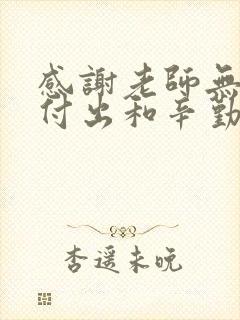 感謝老師無
付出和辛勤
杏遥未晚